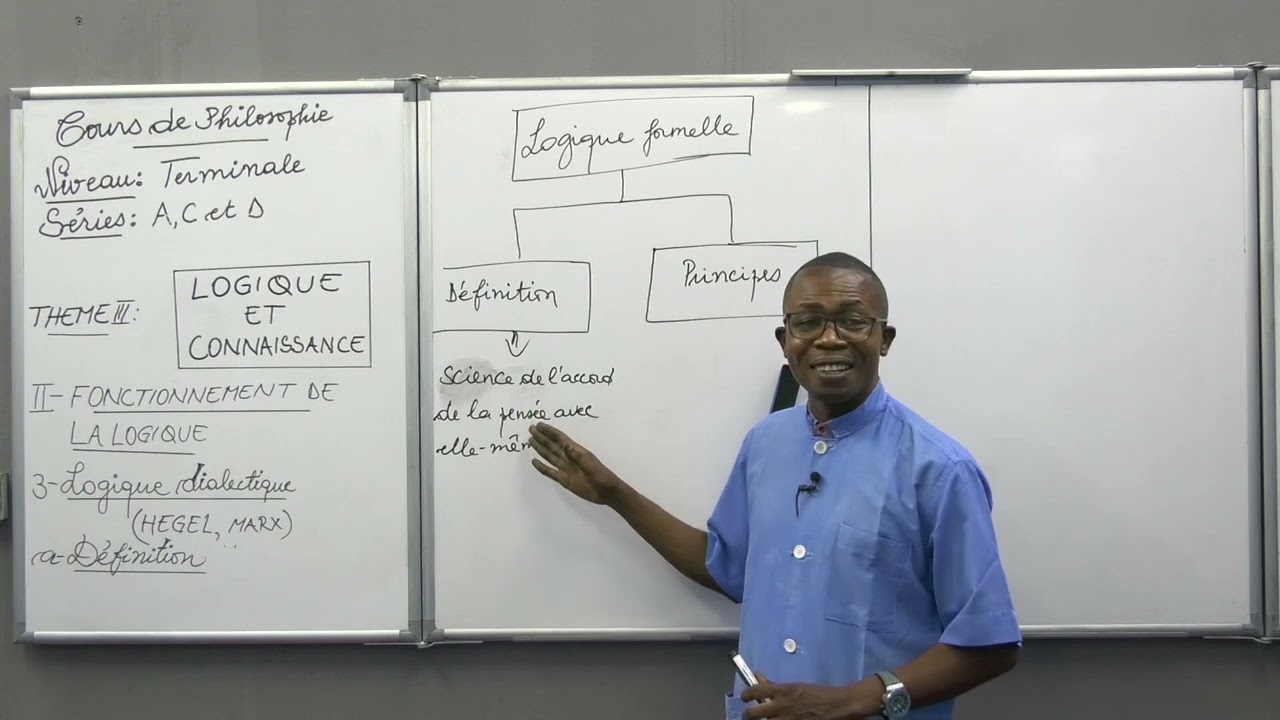 Cours de Philosophie
Niveau: Terminale
Séries: A, C et D
THEME III:
LOGIQUE
ET
CONNAISSANCE
II- FONCTIONNEMENT DE
LA LOGIQUE
3- Logique dialectique
(HEGEL, MARX)
a- Définition
Logique formelle
Définition
Principes
Science de l'accord
de la pensée avec
elle-mêm